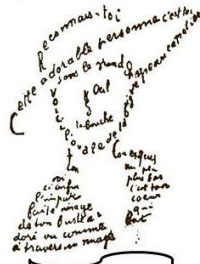 Reconnais-toi
Cette adorable personne c'est toi
sous le grand chapeau canotier
œil
la bouche
voici l'ovale de ta figure
ton
cou exquis
voici
enfin
l'impar
faite image
de ton buste a
doré vu comme
à travers un nuage
un peu
plus bas
c'est ton
coeur
qui
bat